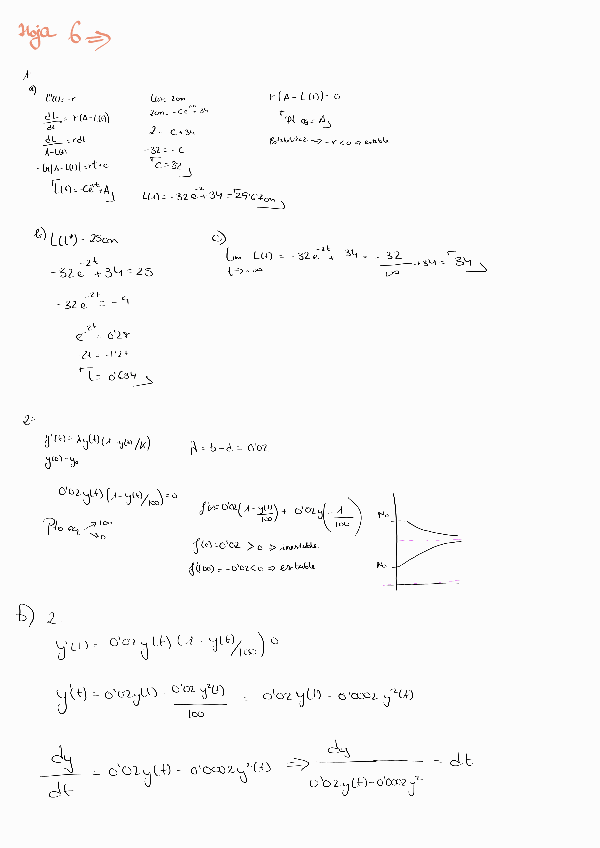 Hoja 6 ⇒
1
a)
L'(t) = r
dL/dt = r(A-L(t))
dL/A-L(t) = rdt
-ln|A-L(t)| = rt+c
L(t) = -Ce^-rt + A
L(0) = 2cm
2 = -C+34
-32 = -C
C = 32
L(t) = -32e^-2t + 34 =
r(A-L(t)) = 0
Estabilidad → -r<0 ⇒ estable
b) L(t*) = 25cm
-32e^-2t + 34 = 25
-32e^-2t = -9
e^-2t = 0'28
t = 0'634
c)
Lim L(t) = -32e^-2t + 34 = -32/∞ + 34 = 34
t→∞
2:
y'(t) = λy(t)(1-y(t)/K)
y(0) = y₀
λ = b-d = 0'02
0'02y(t)(1-y(t)/100) = 0
Pto eq. → 100
→ 0
f'(y) = 0'02(1-y(t)/100) + 0'02y(-1/100)
f'(0) = 0'02 > 0 ⇒ inestable
f'(100) = -0'02<0 ⇒ estable
N₀
N₀
b) 2
y'(t) = 0'02y(t)(1-y(t)/100) 0
y'(t) = 0'02y(t) - 0'02y²(t)/100 = 0'02y(t) - 0'0002y²(t)
dy/dt = 0'02y(t) - 0'0002y²(t) ⇒ dy/0'02y(t)-0'0002y² = dt